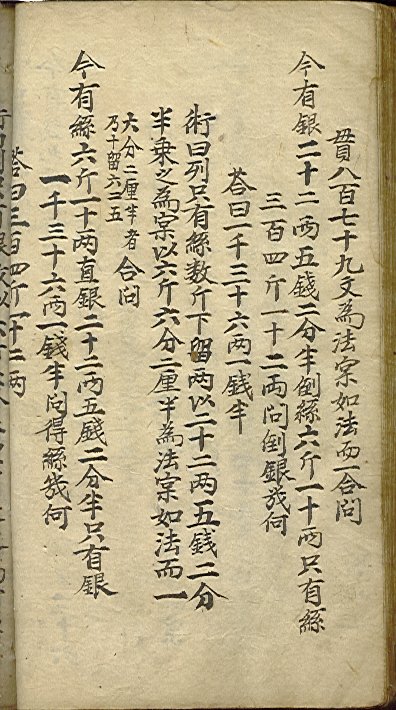 貫八百七十九文為法宲如法而一合問
今有銀二十二兩五錢二分半倒絲六斤一十兩只有絲
三百四斤一十二兩問倒銀幾何
荅曰一千三十六兩一錢半
術曰列只有絲数斤下留兩以二十二兩五錢二分
半乗之為宲以六斤六分二厘半為法宲如法而一
六分二厘半者
乃十留六二五
合問
今有絲六斤一十兩直銀二十二兩五錢二分半只有銀
一千三十六兩一錢半問得絲幾何
荅曰三百四斤一十二兩